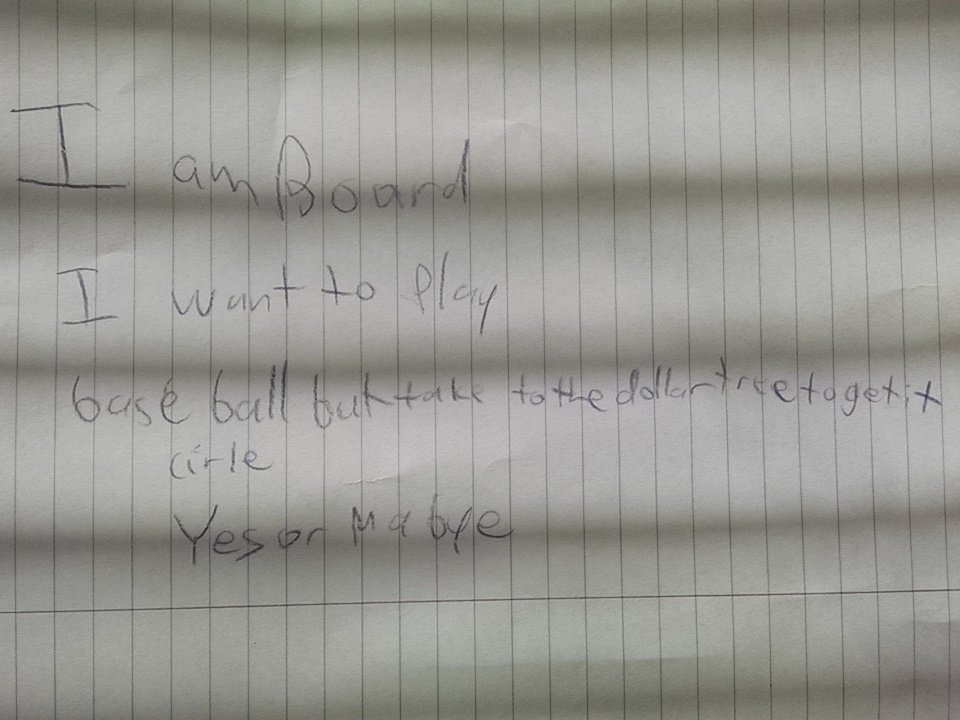 I am Board
I want to Play
base ball but take to the dollar tree to get it
cirle
Yes or Mabye